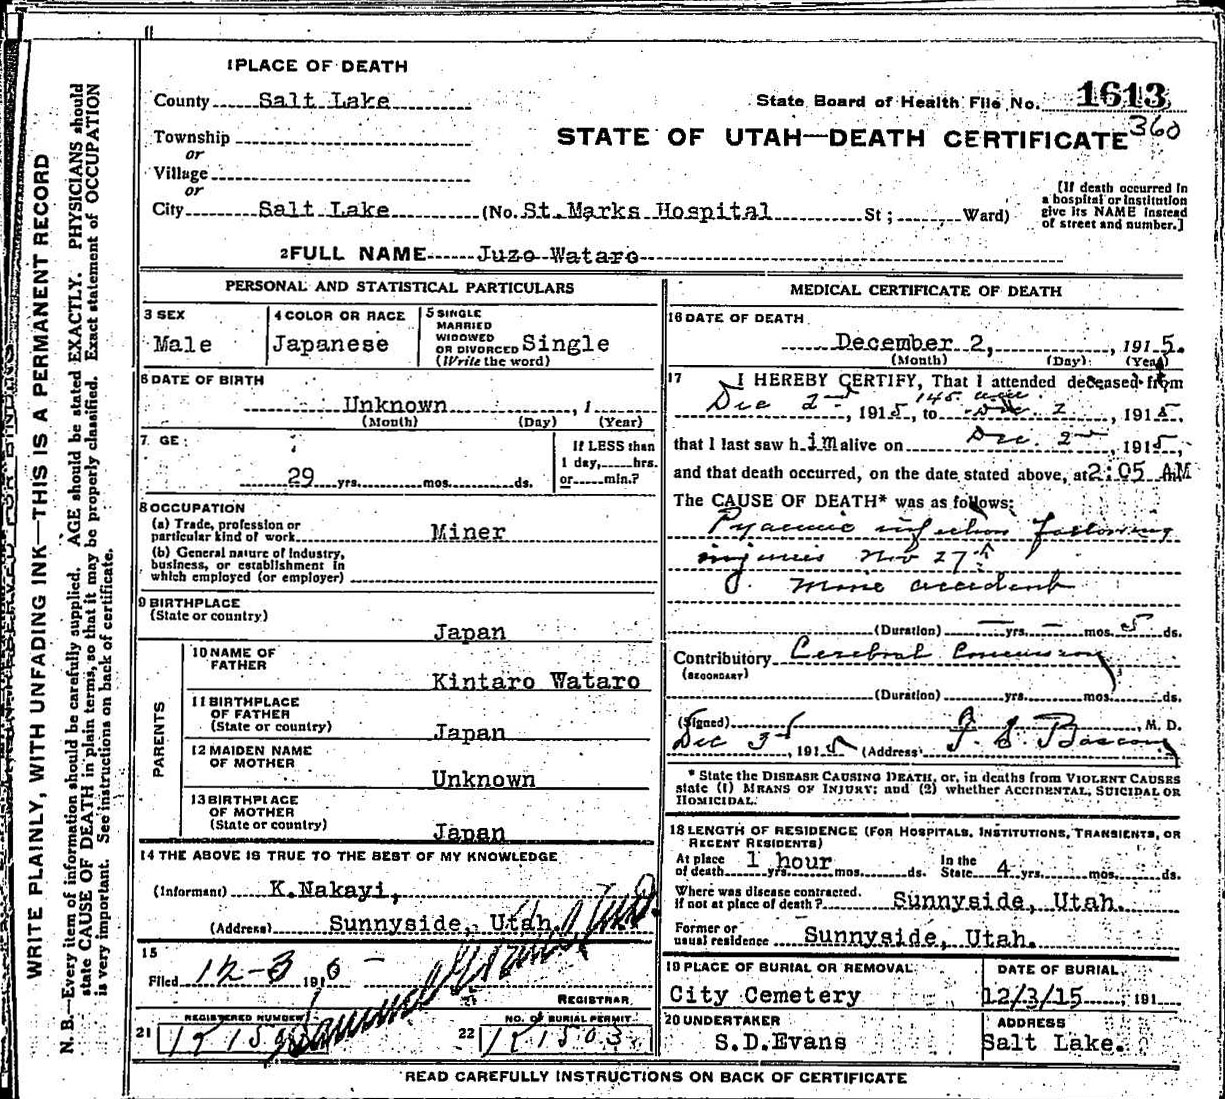 1 PLACE OF DEATH
County Salt Lake
State Board of Health File No. 1613
360
Township
STATE OF UTAH—DEATH CERTIFICATE
or
Village
or
City Salt Lake (No. St. Marks Hospital St; Ward)
[If death occurred in
a hospital or institution
give its NAME instead
of street and number.]
2 FULL NAME Juzo Wataro
PERSONAL AND STATISTICAL PARTICULARS
3 SEX
Male
4 COLOR OR RACE
Japanese
5 SINGLE
MARRIED
WIDOWED
OR DIVORCED Single
(Write the word)
6 DATE OF BIRTH
Unknown , 1
(Month) (Day) (Year)
7 GE
29 yrs. mos. ds.
If LESS than
1 day, hrs.
or min.?
8 OCCUPATION
(a) Trade, profession or
particular kind of work Miner
(b) General nature of Industry,
business, or establishment in
which employed (or employer)
9 BIRTHPLACE
(State or country)
Japan
PARENTS
10 NAME OF
FATHER
Kintaro Wataro
11 BIRTHPLACE
OF FATHER
(State or country) Japan
12 MAIDEN NAME
OF MOTHER
Unknown
13 BIRTHPLACE
OF MOTHER
(State or country) Japan
14 THE ABOVE IS TRUE TO THE BEST OF MY KNOWLEDGE
(Informant) K. Nakayi,
(Address) Sunnyside, Utah.
15
Filed 12-3 191
REGISTRAR
REGISTERED NUMBER
21
NO. OF BURIAL PERMIT
22 12503
MEDICAL CERTIFICATE OF DEATH
16 DATE OF DEATH
December 2, , 1915.
(Month) (Day) (Year)
17 I HEREBY CERTIFY, That I attended deceased from
Dec 2nd, 1915, to Dec 2, 1915,
that I last saw h im alive on Dec. 2nd 1915,
and that death occurred, on the date stated above, at 2:05 AM
The CAUSE OF DEATH* was as follows:
Pyaemic infection following
injuries Nov 27th
Mine accident
(Duration) — yrs. — mos. 5 ds.
Contributory Cerebral Concussion
(SECONDARY)
(Duration) yrs. mos. ds.
(Signed) , M. D.
Dec 3rd, 1915 (Address)
* State the DISEASE CAUSING DEATH, or, in deaths from VIOLENT CAUSES
state (1) MEANS OF INJURY; and (2) whether ACCIDENTAL, SUICIDAL OR
HOMICIDAL.
18 LENGTH OF RESIDENCE (FOR HOSPITALS, INSTITUTIONS, TRANSIENTS, OR
RECENT RESIDENTS)
At place
of death 1 hour yrs. mos. ds.
In the
State 4 yrs. mos. ds.
Where was disease contracted.
if not at place of death? Sunnyside, Utah.
Former or
usual residence Sunnyside, Utah.
19 PLACE OF BURIAL OR REMOVAL
City Cemetery
DATE OF BURIAL
12/3/15 , 191
20 UNDERTAKER
S.D.Evans
ADDRESS
Salt Lake.
READ CAREFULLY INSTRUCTIONS ON BACK OF CERTIFICATE
WRITE PLAINLY, WITH UNFADING INK—THIS IS A PERMANENT RECORD
N. B.—Every item of information should be carefully supplied. AGE should be stated EXACTLY. PHYSICIANS should
state CAUSE OF DEATH in plain terms, so that it may be properly classified. Exact statement of OCCUPATION
is very important. See instructions on back of certificate.